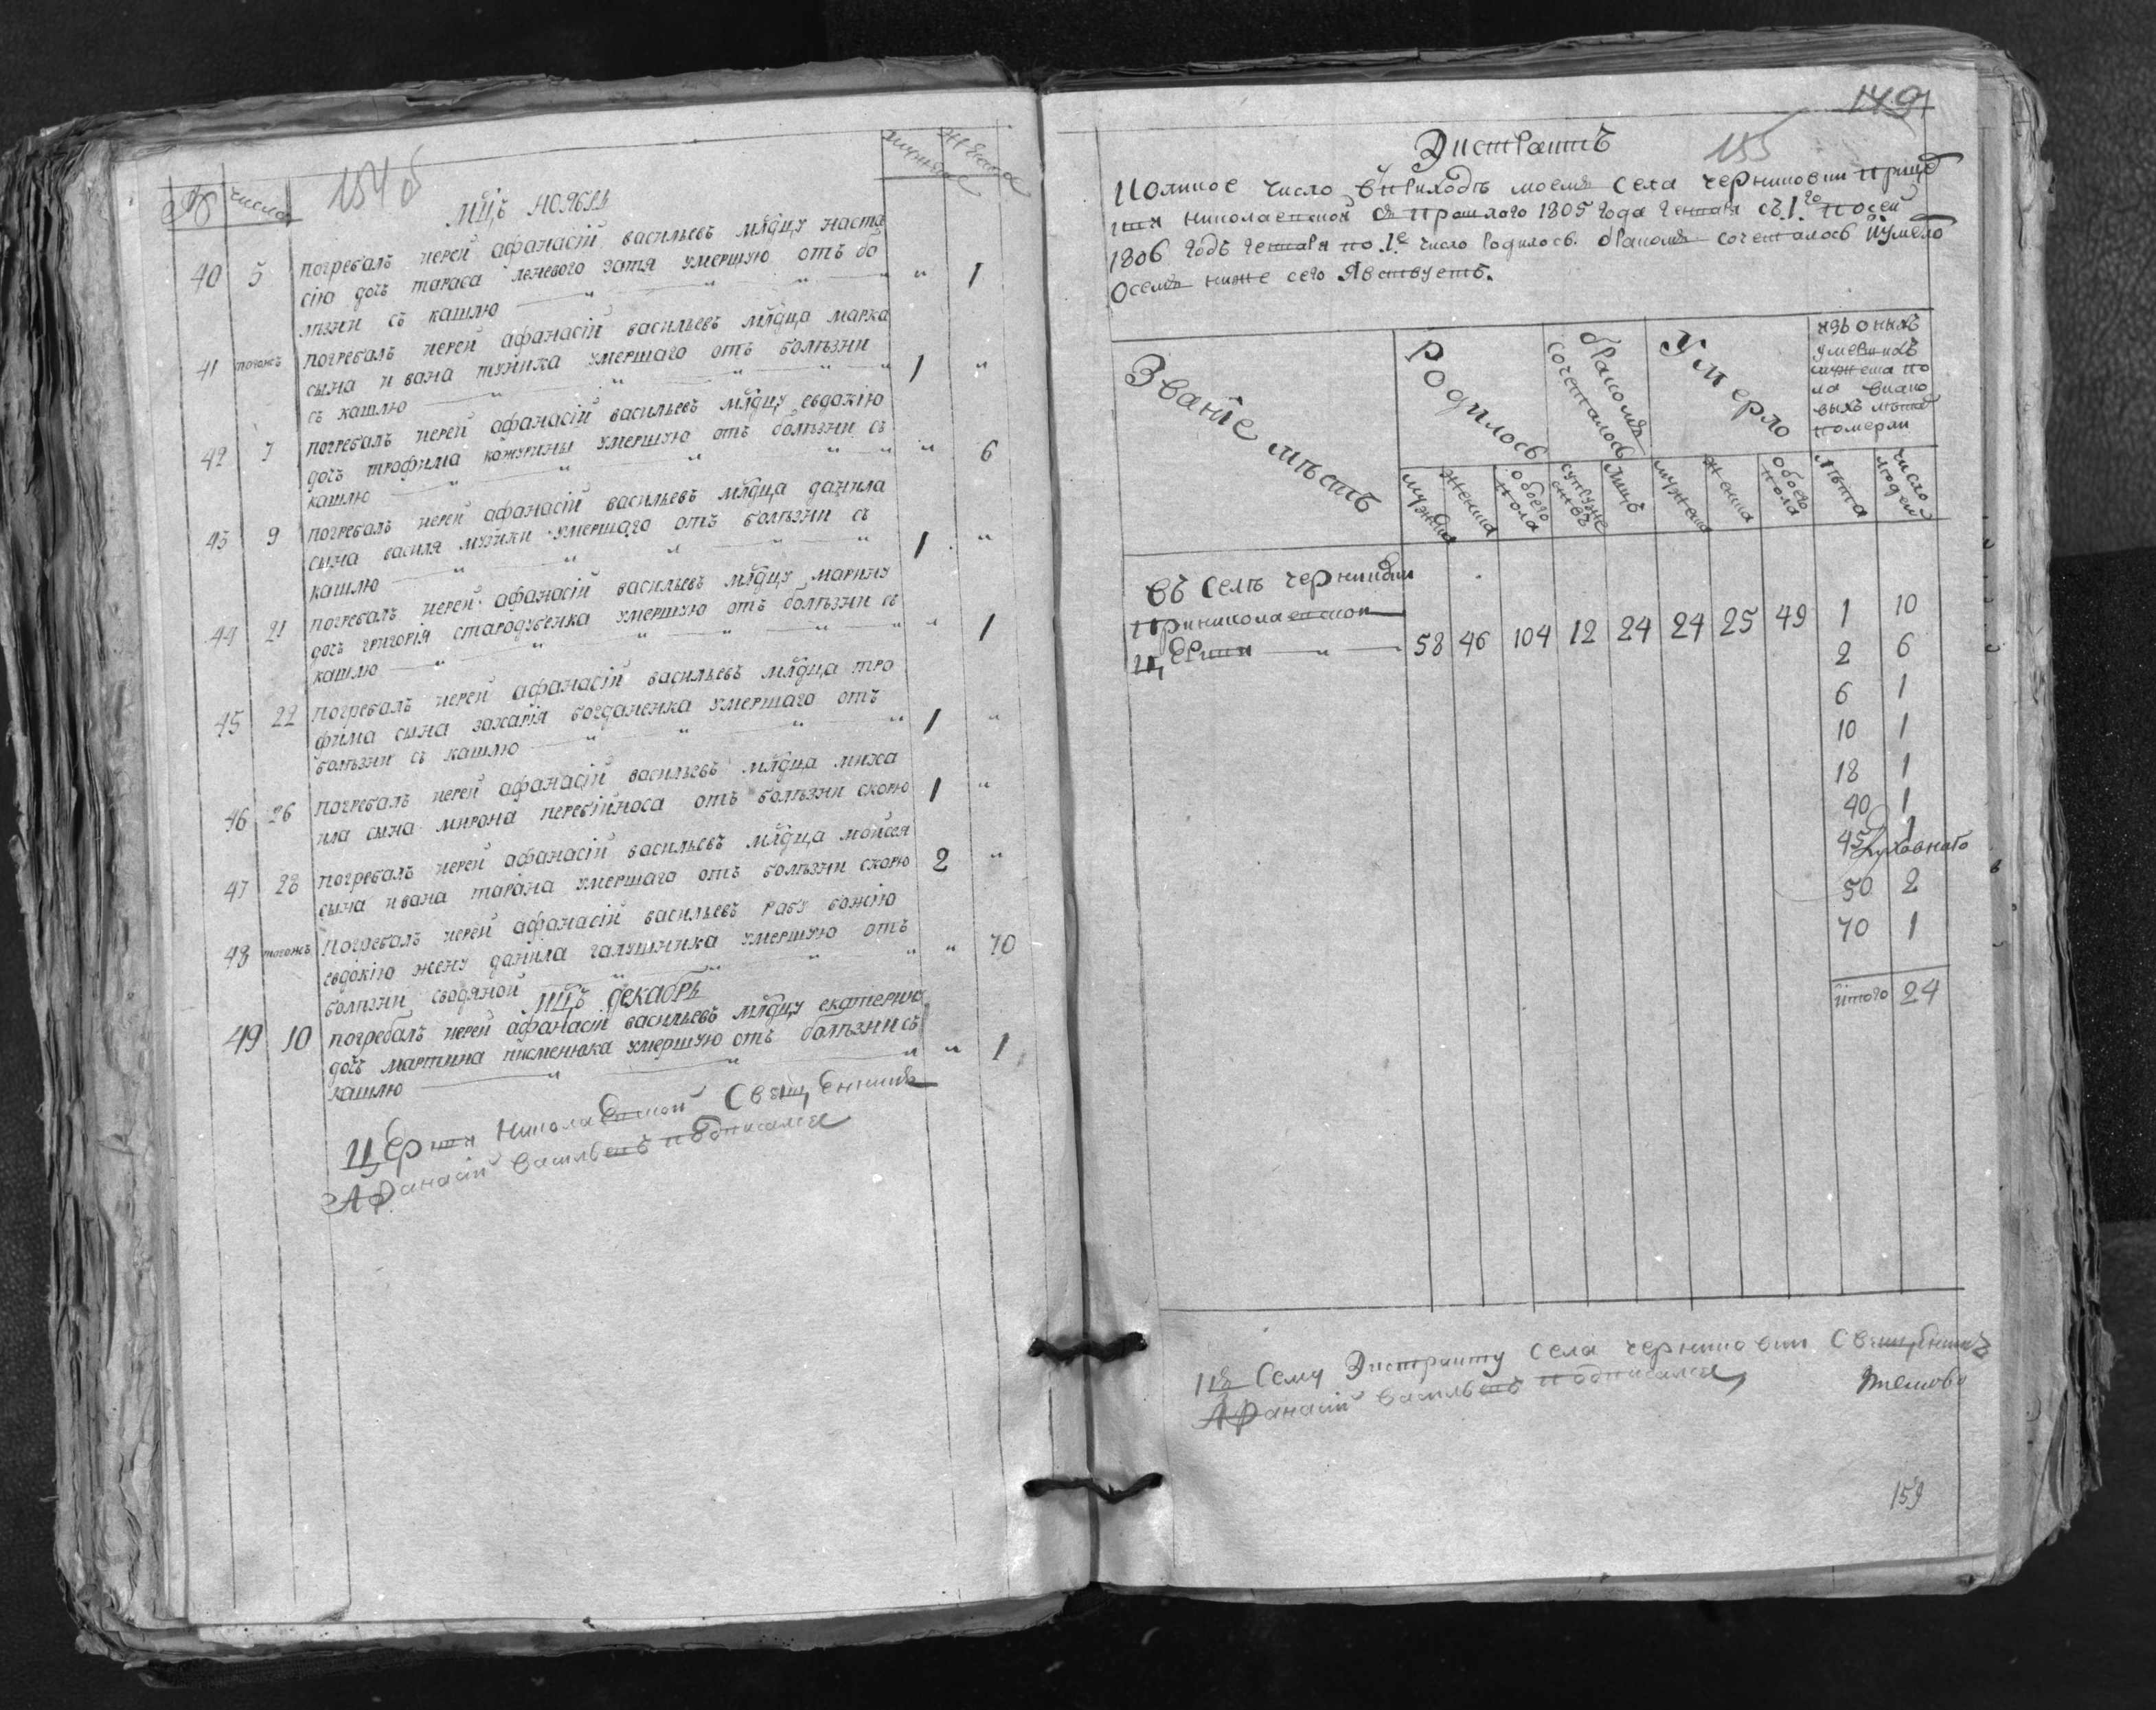 № числа 154об мужеска женска
мц̃ъ ноябрь
40 5 погребалъ иерей афанасій васильевъ младцу наста
сію дочь тараса леневого зятя умершую отъ бо
лѣзни съ кашлю " 1
41 тогожъ погребалъ иерей афанасій васильевъ младца марка
сына ивана тупика умершаго отъ болѣзни
съ кашлю 1 "
42 7 погребалъ иерей афанасій васильевъ младцу евдокію
дочь трофима кожурины умершую отъ болѣзни съ
кашлю " 6
43 9 погребалъ иерей афанасій васильевъ младца данила
сына василя умершаго отъ болѣзни съ
кашлю 1 "
44 21 погребалъ иерей афанасій васильевъ младцу марину
дочь григорія стародубенка умершую отъ болѣзни съ
кашлю " 1
45 22 погребалъ иерей афанасій васильевъ младца тро
фима сына захарія богданенка умершаго отъ
болѣзни съ кашлю 1 "
46 26 погребалъ иерей афанасій васильевъ младца миха
ила сына мирона перебійноса отъ болѣзни скорю 1 "
47 28 погребалъ иерей афанасій васильевъ младца мойсея
сына ивана тарана умершаго отъ болѣзни скорю 2 "
48 тогожъ Погребалъ иерей афанасій васильевъ рабу божію
евдокію жену данила галушника умершую отъ
болѣзни сводяной " 70
мц̃ъ декабрь
49 10 погребалъ иерей афанасій васильевъ младцу екатерину
дочь мартина писменюка умершую отъ болѣзни съ
кашлю " 1
Церкви Николаевской Священникъ
Афанасій Васильевъ подписался
149
Экстрактъ 155
Коликое число в приходѣ моемъ села черниповки
николаевской от прошлого 1805 года генваря съ 1го по сей
1806 годъ генваря по 1е число родилось бракомъ сочеталось и умерло
О семъ ниже сего Явствуетъ.
Званіе мѣстъ
Родилось
бракомъ сочеталось
Умерло
изъ оныхъ
умершихъ
мужеска по
ла въ како
выхъ лѣтах
померли
мужеска женска обоего пола супружествъ лицъ мужеска женска обоего пола лѣта число людей
въ селѣ
при николаевской
церкви 58 46 104 12 24 24 25 49 1 10
2 6
6 1
10 1
18 1
40 1
45 1 духовнаго
50 2
70 1
итого 24
Къ сему Экстракту села Священникъ
Афанасій Васильевъ подписался
159